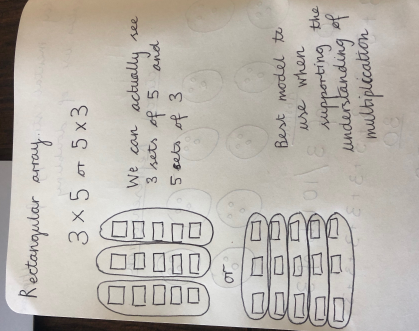 Rectangular array.
3 × 5 or 5 × 3
We can actually see
3 sets of 5 and
5 sets of 3
or
Best model to
use when
supporting the
understanding of
multiplication